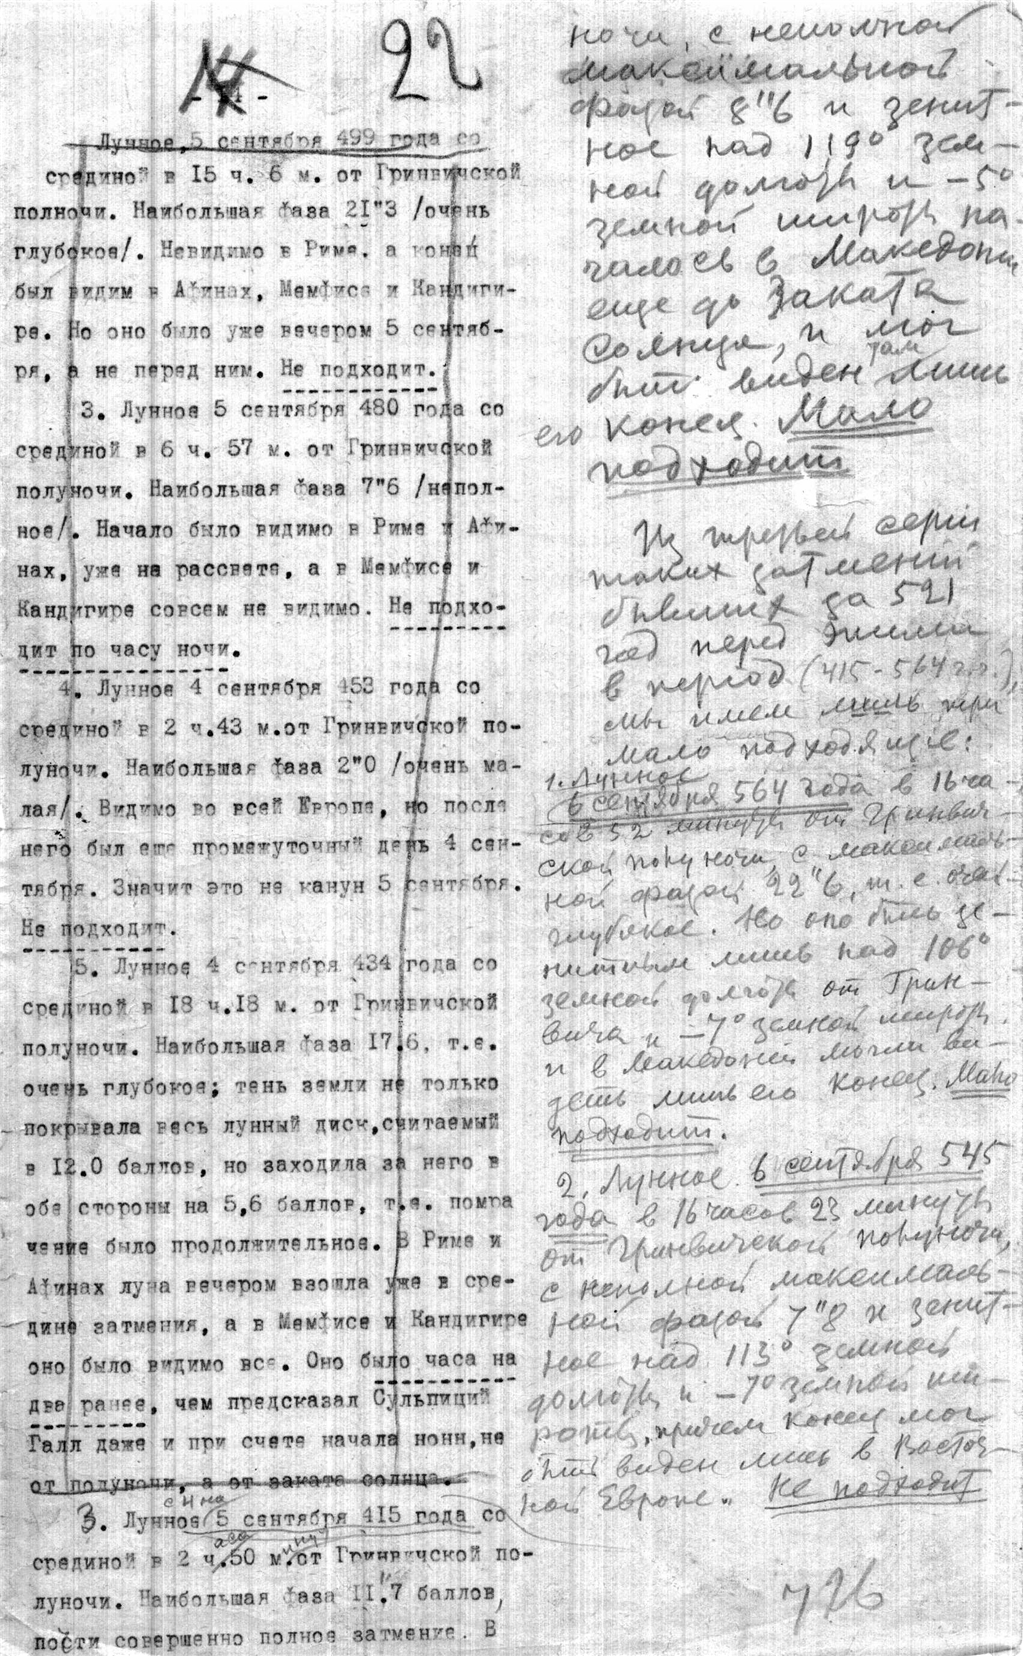 22
Лунное, 5 сентября 499 года со
срединой в 15 ч. 6 м. от Гринвичской
полночи. Наибольшая фаза 21"3 /очень
глубокое/. Невидимо в Риме. а конец
был видим в Афинах, Мемфисе и Кандиги-
ре. Но оно было уже вечером 5 сентяб-
ря, а не перед ним. Не подходит.
3. Лунное 5 сентября 480 года со
срединой в 6 ч. 57 м. от Гринвичской
полуночи. Наибольшая фаза 7"6 /непол-
ное/. Начало было видимо в Риме и Афи-
нах, уже на рассвете, а в Мемфисе и
Кандигире совсем не видимо. Не подхо-
дит по часу ночи.
4. Лунное 4 сентября 453 года со
срединой в 2 ч.43 м.от Гринвичской по-
луночи. Наибольшая фаза 2"0 /очень ма-
лая/. Видимо во всей Европе, но после
него был еще промежуточный день 4 сен-
тября. Значит это не канун 5 сентября.
Не подходит.
5. Лунное 4 сентября 434 года со
срединой в 18 ч.18 м. от Гринвичской
полуночи. Наибольшая фаза 17.6, т.е.
очень глубокое; тень земли не только
покрывала весь лунный диск,считаемый
в 12.0 баллов, но заходила за него в
обе стороны на 5,6 баллов, т.е. помра
чение было продолжительное. В Риме и
Афинах луна вечером взошла уже в сре-
дине затмения, а в Мемфисе и Кандигире
оно было видимо все. Оно было часа на
два ранее, чем предсказал Сульпиций
Галл даже и при счете начала нонн,не
от полуночи, а от заката солнца.
3. Лунное 5 сентября 415 года со
срединой в 2 ч.50 м.от Гринвичской по-
луночи. Наибольшая фаза 11"7 баллов,
почти совершенно полное затмение. В
ночи, с неполной
максимальной
фазой 8"6 и зенит-
ное над 119° зем-
ной долготы и -5°
земной широты на-
чалось в Македонии
еще до Заката
Солнца, и мог
быть виден там лишь
его конец. Мало
подходит
Из третьей серии
таких затмений
бывших за 521
год перед этими
в период (415-564 г.г.),
мы имеем лишь три
мало подходящие:
1. Лунное
6 сентября 564 года в 16 ча-
сов 52 минуты от Гринвич-
ской полуночи, с максималь-
ной фазой 22"6, т.е. очень
глубокое. Но оно было зе-
нитным лишь над 106°
земной долготы от Грин-
вича и -7° земной широты.
и в Македонии могли ви-
деть лишь его конец. Мало
подходит.
2. Лунное 6 сентября 545
года в 16 часов 23 минуты
от Гринвической полуночи,
с неполной максималь-
ной фазой 7"8 и зенит-
ное над 113° земной
долготы и -7° земной ши-
роты, причем конец мог
быть виден лишь в Восточ-
ной Европе. Не подходит
726